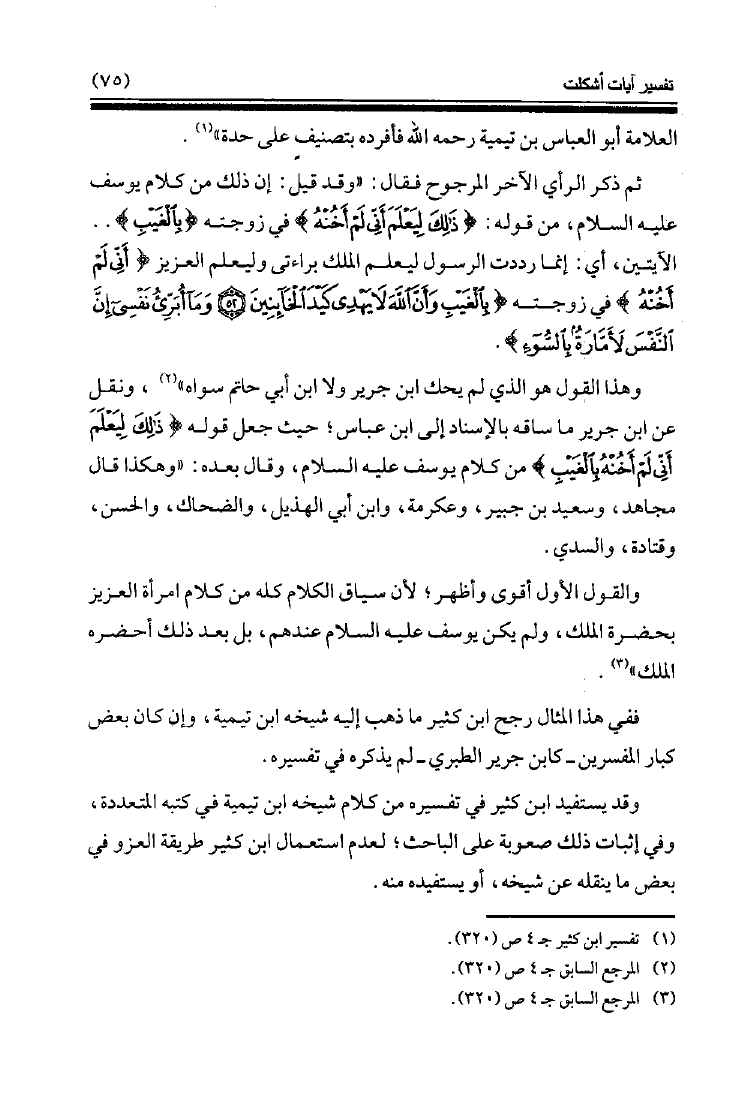 تفسير آيات أشكلت (٧٥)
العلامة أبو العباس بن تيمية رحمه الله فأفرده بتصنيف على حدة»(١) .
ثم ذكر الرأي الآخر المرجوح فقال : «وقد قيل : إن ذلك من كلام يوسف
عليه السلام ، من قوله : ﴿ ذَٰلِكَ لِيَعْلَمَ أَنِّي لَمْ أَخُنْهُ ﴾ في زوجته ﴿ بِٱلْغَيْبِ ﴾ . .
الآيتين ، أي : إنما رددت الرسول ليعلم الملك براءتي وليعلم العزيز ﴿ أَنِّي لَمْ
أَخُنْهُ ﴾ في زوجته ﴿ بِٱلْغَيْبِ وَأَنَّ ٱللَّهَ لَا يَهْدِي كَيْدَ ٱلْخَآئِنِينَ ٥٢ وَمَآ أُبَرِّئُ نَفْسِيٓ إِنَّ
ٱلنَّفْسَ لَأَمَّارَةٌۢ بِٱلسُّوٓءِ ﴾ .
وهذا القول هو الذي لم يحك ابن جرير ولا ابن أبي حاتم سواه»(٢) ، ونقل
عن ابن جرير ما ساقه بالإسناد إلى ابن عباس ؛ حيث جعل قوله ﴿ ذَٰلِكَ لِيَعْلَمَ
أَنِّي لَمْ أَخُنْهُ بِٱلْغَيْبِ ﴾ من كلام يوسف عليه السلام ، وقال بعده : «وهكذا قال
مجاهد ، وسعيد بن جبير ، وعكرمة ، وابن أبي الهذيل ، والضحاك ، والحسن ،
وقتادة ، والسدي .
والقول الأول أقوى وأظهر ؛ لأن سياق الكلام كله من كلام امرأة العزيز
بحضرة الملك ، ولم يكن يوسف عليه السلام عندهم ، بل بعد ذلك أحضره
الملك»(٣) .
ففي هذا المثال رجح ابن كثير ما ذهب إليه شيخه ابن تيمية ، وإن كان بعض
كبار المفسرين ـ كابن جرير الطبري ـ لم يذكره في تفسيره .
وقد يستفيد ابن كثير في تفسيره من كلام شيخه ابن تيمية في كتبه المتعددة ،
وفي إثبات ذلك صعوبة على الباحث ؛ لعدم استعمال ابن كثير طريقة العزو في
بعض ما ينقله عن شيخه ، أو يستفيده منه .
(١) تفسير ابن كثير جـ ٤ ص (٣٢٠).
(٢) المرجع السابق جـ ٤ ص (٣٢٠).
(٣) المرجع السابق جـ ٤ ص (٣٢٠).